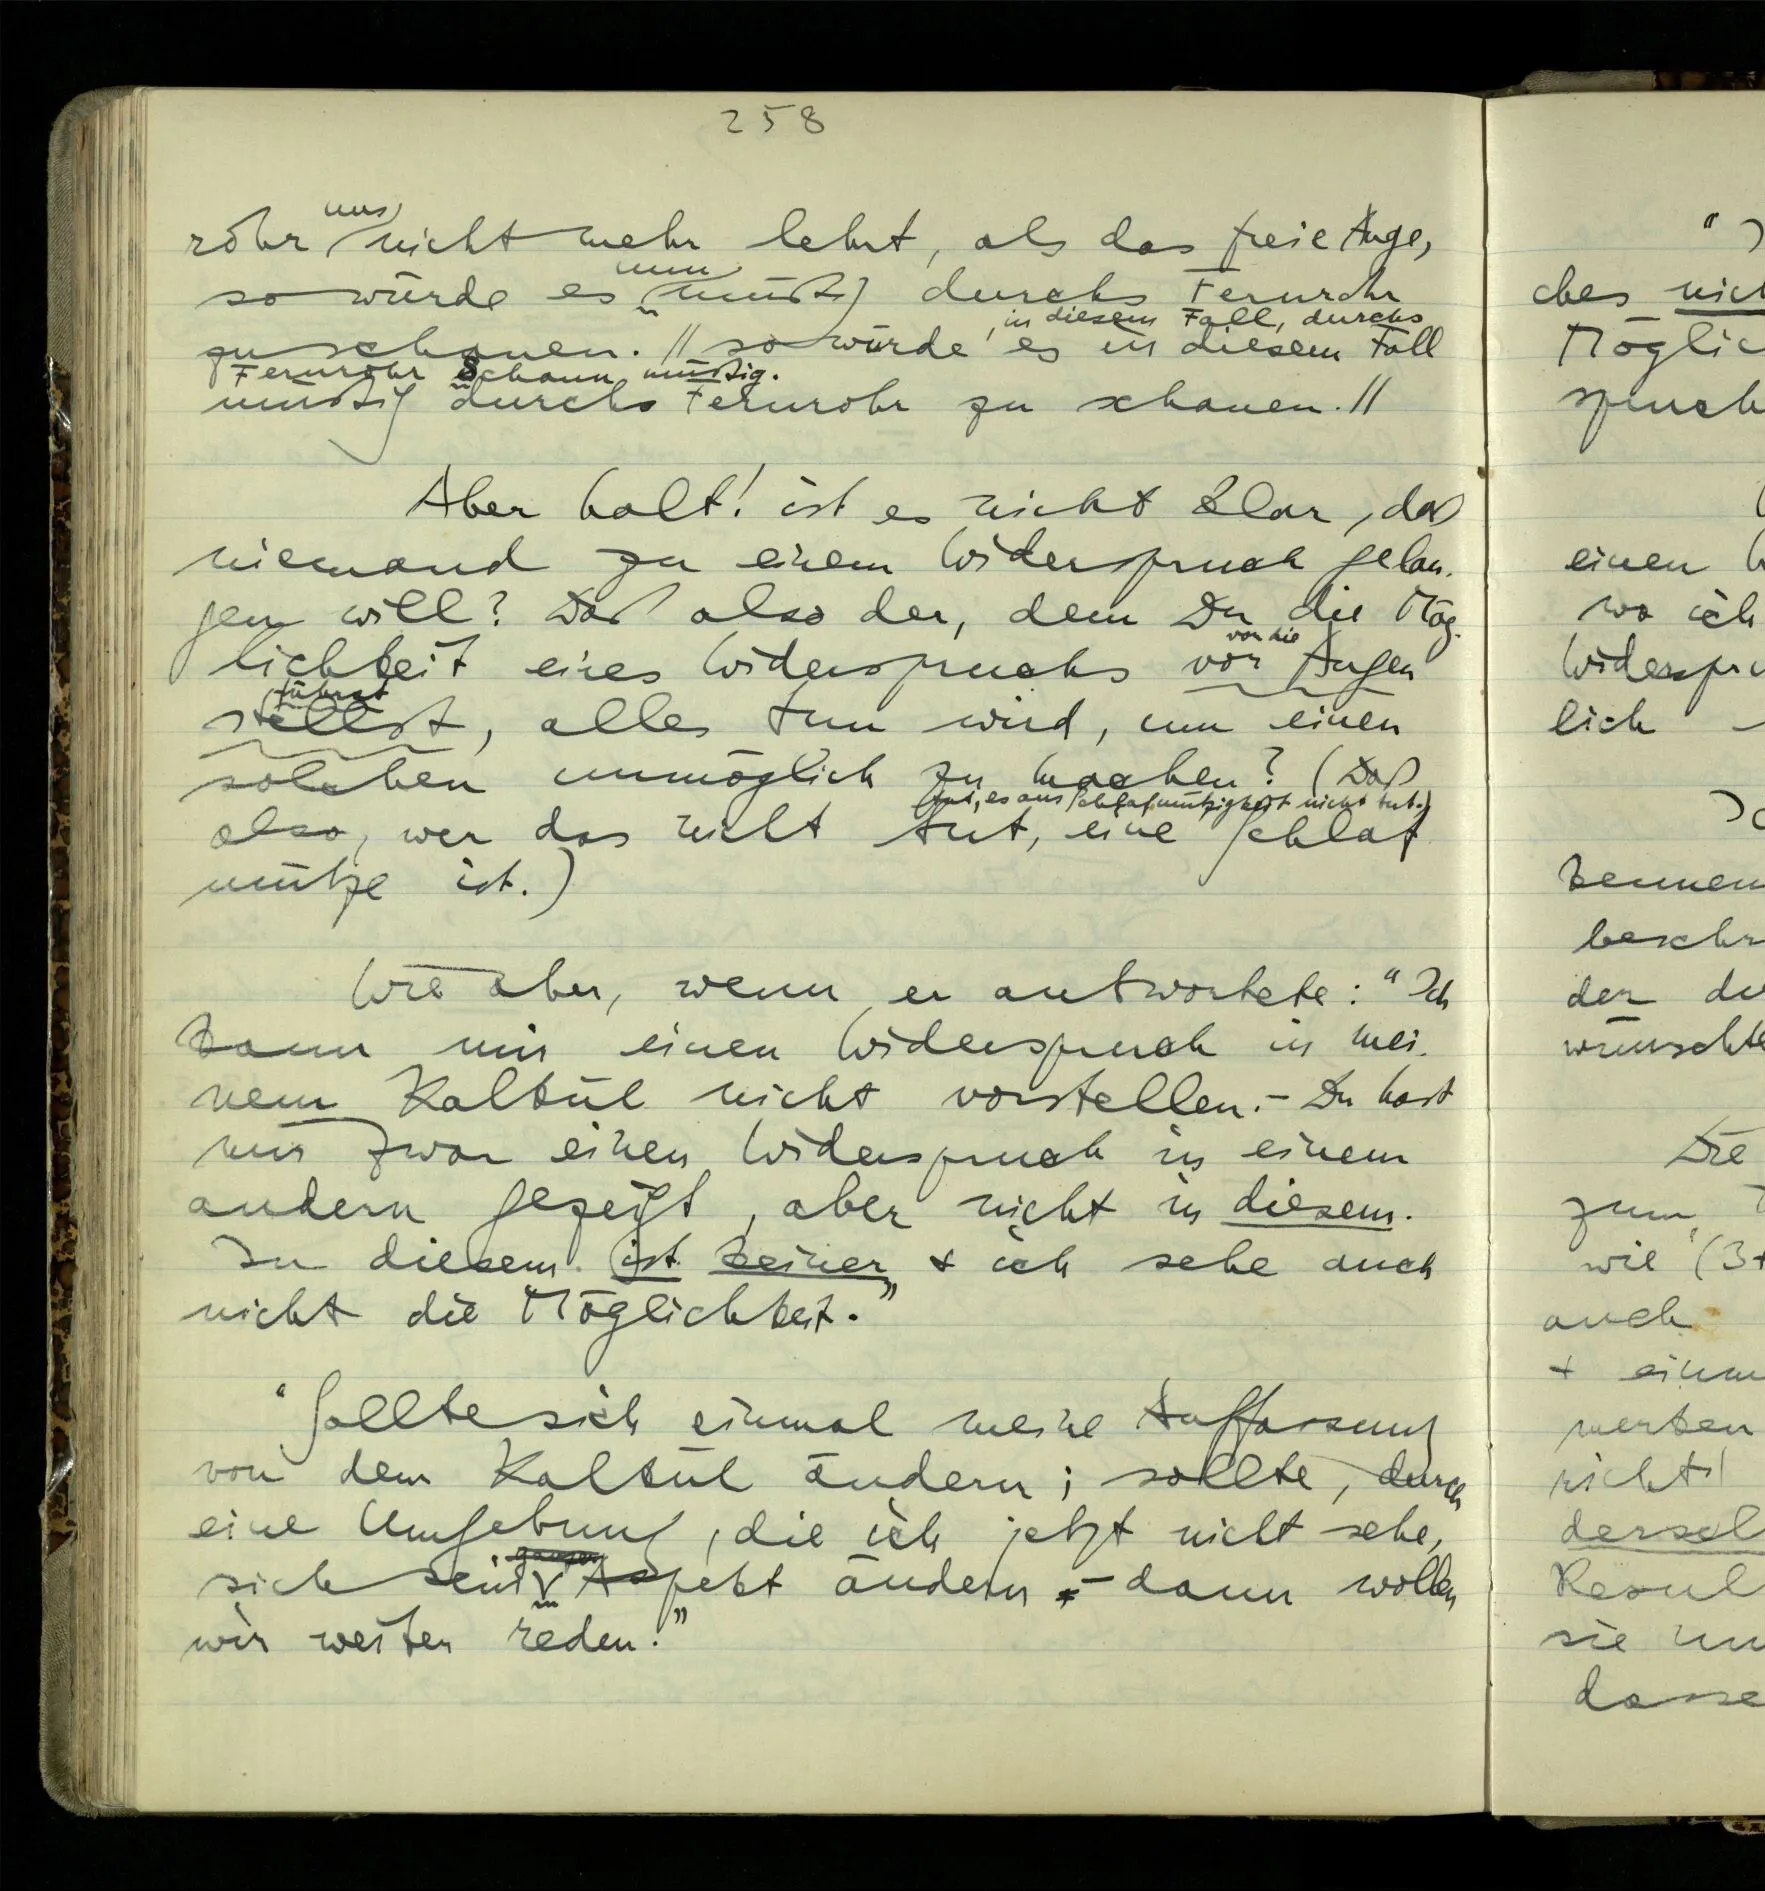 258
uns
rohr nicht mehr lehrt, als das freie Auge,
so würde es durchs Fernrohr
in diesem Fall, durchs
zu schauen. // so würde es in diesem Fall
Fernrohr Schaun müßig.
müßig durchs Fernrohr zu schauen. //
Aber halt! ist es nicht klar, daß
niemand zu einem Widerspruch gelan-
gen will? Daß also der, dem Du die Mög-
vor die
lichkeit eines Widerspruchs vor Augen
führst
stellst, alles tun wird, um einen
solchen unmöglich zu machen? (Daß
tut, es aus Schlafmützigkeit nicht tut.)
also, wer das nicht tut, eine Schlaf
mütze ist.)
Wie aber, wenn er antwortete: "Ich
kann mir einen Widerspruch in mei-
nem Kalkül nicht vorstellen. – Du hast
mir zwar einen Widerspruch in einem
andern gezeigt, aber nicht in diesem.
In diesem ist keiner & ich sehe auch
nicht die Möglichkeit."
"Sollte sich einmal meine Auffassung
von dem Kalkül ändern; sollte, durch
eine Umgebung, die ich jetzt nicht sehe,
ganzer
sich sein Aspekt ändern – dann wollen
wir weiter reden."
ches
Möglic
spruch
einen W
wo ich
Widerspru
lich
kennen
beschr
der du
wünschte
Die
zum
wie (3+
auch
+ einm
merken
nicht
dersel
Resul
sie un
dasse